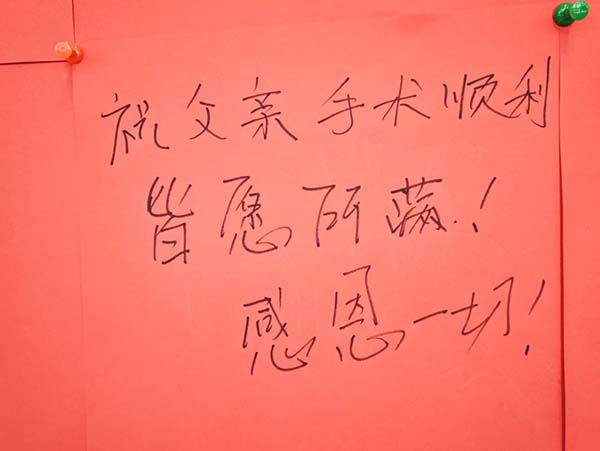 祝父亲手术顺利
皆愿所满！
感恩一切！